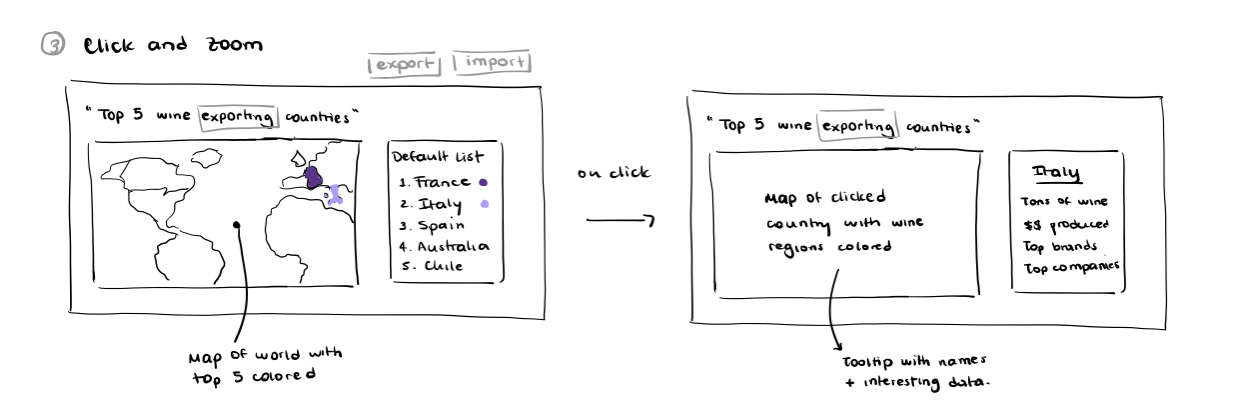 3 Click and zoom
export import
"Top 5 wine exporting countries"
Default List
1. France
2. Italy
3. Spain
4. Australia
5. Chile
Map of world with
top 5 colored
on click
"Top 5 wine exporting countries"
Map of clicked
country with wine
regions colored
Italy
Tons of wine
$$ produced
Top brands
Top companies
Tooltip with names
+ interesting data.